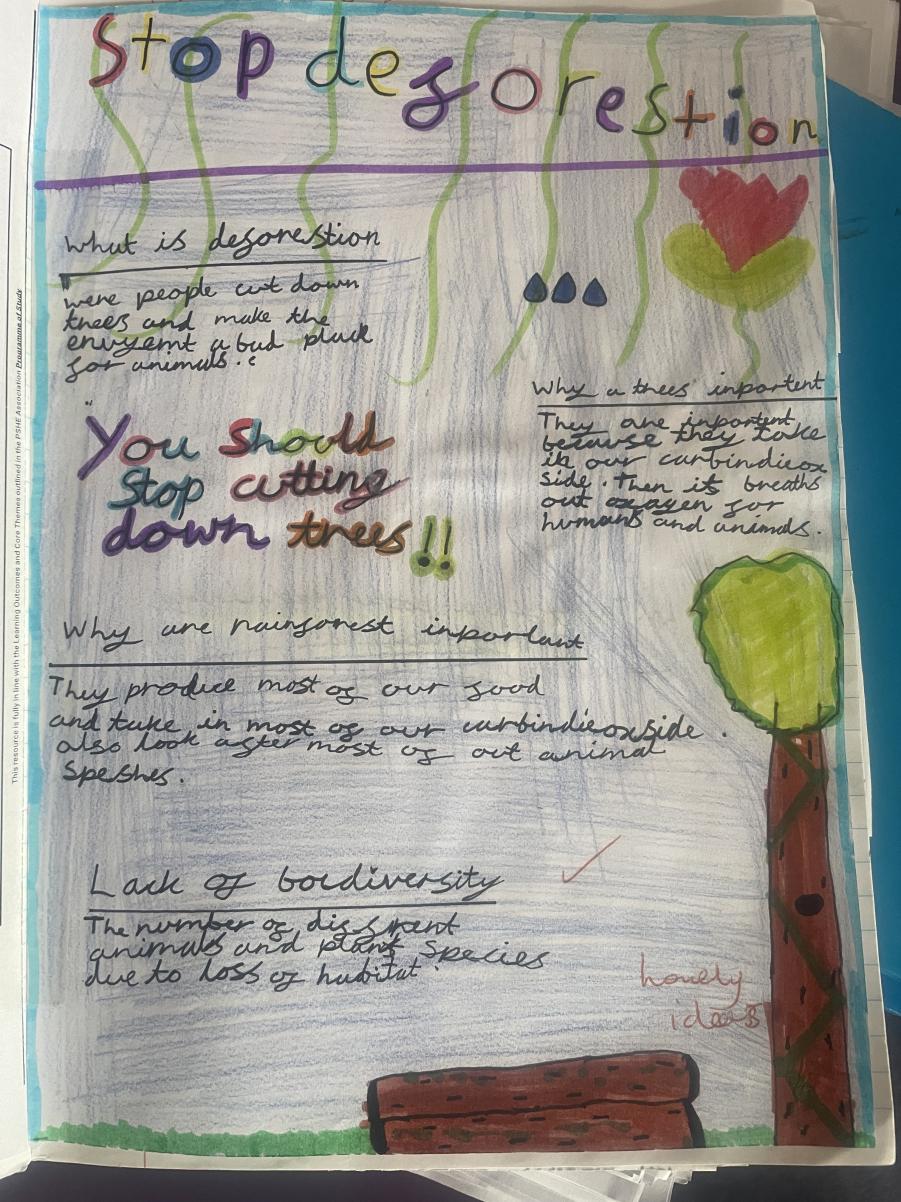 Stop deforestion
What is deforestion
were people cut down
trees and make the
envyemt a bad plack
for animals.
You should
Stop cutting
down trees!!
Why a trees inportent
They are inportent
because they take
in our carbindieox
side. Then it breaths
out oxagen for
humans and animals.
Why are rainforest inportant
They produce most of our food
and take in most of our carbindieoxside.
also look after most of out animal
Speshes.
Lack of boidiversity
The number of diffrent
animals and plant Species
due to loss of habitat.
lovely
ideas
This resource is fully in line with the Learning Outcomes and Core Themes outlined in the PSHE Association Programme of Study